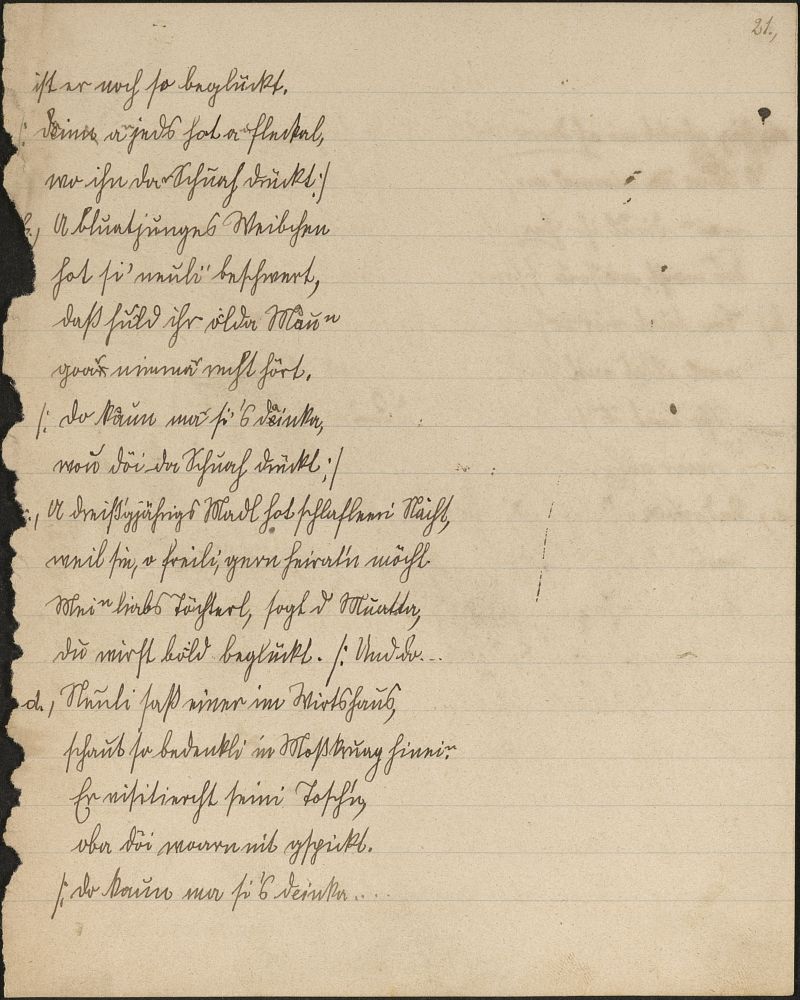 21.,
ist er noch so beglückt.
/: Deinn a jeds hot a fleckal,
wo ihn da Schuah drückt :/
b., A bluatjunges Weibchen
hot si' neuli' beschwert,
daß hüld ihr ölda Maun
goar nimma recht hört.
/: do kaun ma si's deinka,
wou döi da Schuah drückt :/
c., A dreiß'gjährigs Madl hot schlaflceri Nächt,
weil sie, o freili, gern heirat'n möcht.
Mein liabs Töchterl, sogt d' Muatta,
du wirst bold beglückt. /: Und do...
d., Neuli saß einer im Wirtshaus,
schaut so bedenkli in Moßkruag hinein.
Er visitiercht seini Tosch'n,
oba döi woarn nit gspickt.
/: do kaun ma si's deinka....